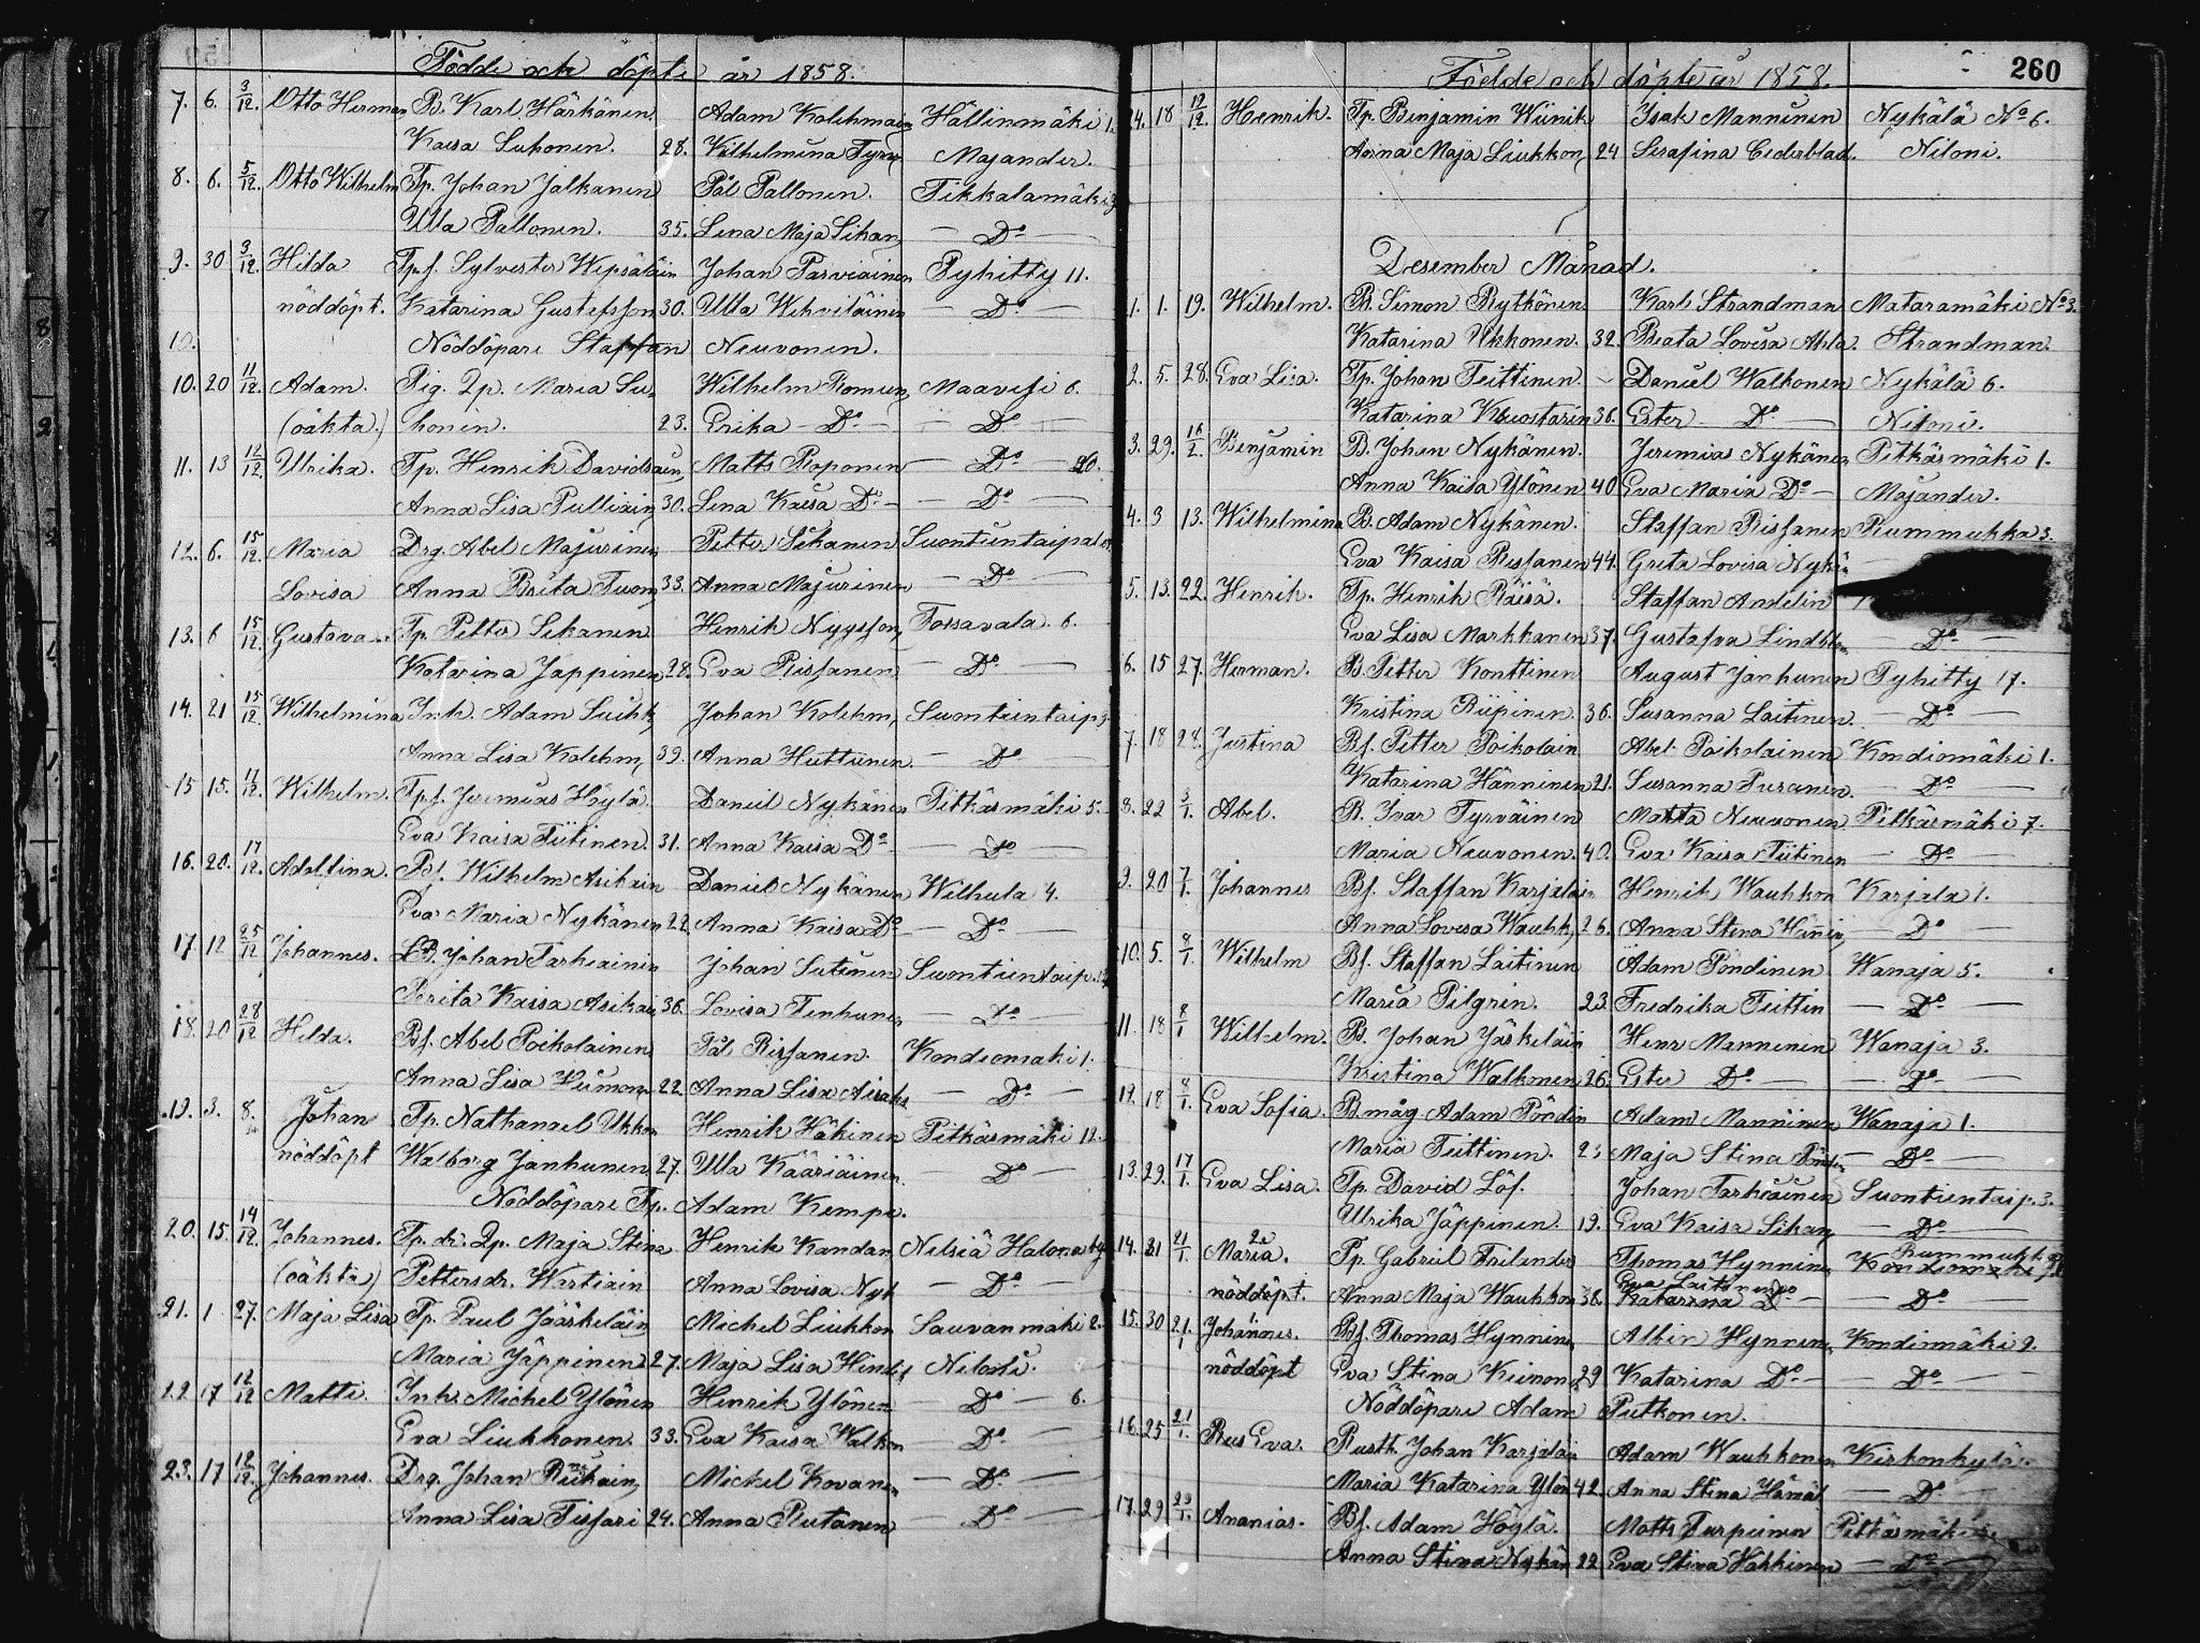 Födde och döpte år 1858.
7. 6. 3/12. Otto Herman B. Karl Härkönen. Adam Kolehmain Hällinmäki 1.
Kaisa Suhonen. 28. Wilhelmina Tyrv Majander.
8. 6. 5/12. Otto Wilhelm Tp. Johan Jalkanen Pål Pallonen. Tikkalamäki 3
Ulla Pallonen. 35. Lena Maja Sikan, — Do —
9. 30 3/12. Hilda Tpf. Sylvester Wepsäläin Johan Parviainen Pyhitty 11.
nöddöpt. Katarina Gustafsson 30. Ulla Wehviläinen — Do —
10. Nöddöpare Staffan Neuvonen.
10. 20 11/12. Adam. Pig. Qp. Maria Su- Wilhelm Romun, Maavesi 6.
(oäkta.) honen. 23. Erika — Do — — Do —
11. 13 12/12. Ulrika. Tp. Henrik Davidsain, Matts Roponen — Do — 20.
Anna Lisa Pulliain, 30. Lena Kaisa Do — — Do —
12. 6. 15/12. Maria Drg. Abel Majurinen Petter Sikanen Suontientaipal
Lovisa Anna Brita Tuom, 33. Anna Majurinen — Do —
13. 6 15/12. Gustava. Tp. Petter Sikanen Henrik Nygsson, Tossavala. 6.
Katarina Jäppinen, 28. Eva Rissanen — Do —
14. 21 15/12. Wilhelmina Inh. Adam Suihk, Johan Kolehm, Suontientaip,
Anna Lisa Kolehm, 39. Anna Huttunen. — Do —
15 15. 11/12. Wilhelm. Tpf. Jeremias Höylä. Daniel Nykänen Pitkäsmäki 5.
Eva Kaisa Tiitinen. 31. Anna Kaisa Do — Do —
16. 20. 17/12. Adolfina. Bf. Wilhelm Asikain Daniel Nykänen Wilhula 4.
Eva Maria Nykänen 22. Anna Kaisa Do — Do —
17. 12 25/12 Johannes. LB. Johan Tarkiainen Johan Sutinen Suontientaip.
Perita Kaisa Asikain, 36. Lovisa Tenhunen — Do —
18. 20 28/12 Hilda. Bf. Abel Poikolainen Pål Rissanen. Kondiomäki 1.
Anna Lisa 22. Anna Lisa — Do —
19. 3. 8. Johan Tp. Nathanael Ukkon Henrik Häkinen Pitkäsmäki 12.
nöddöpt Walborg Janhunen 27. Ulla Kääriäinen. — Do —
Nöddöpare Tp. Adam Kempe.
20. 15. 14/12. Johannes. Tp. dr. Qp. Maja Stina Henrik Kandan Nilsiä Halona by
(oäkta) Pettersdr. Wartiain Anna Lovisa Nyk — Do —
21. 1 27. Maja Lisa Tp. Paul Jääskeläin Michel Liukkon Sauvanmäki 2.
Maria Jäppinen 27. Maja Lisa Hind, Niloni.
22. 17 12/12 Matti. Inhs. Michel Ylönen Henrik Ylönen — Do — 6.
Eva Liukkonen. 33. Eva Kaisa Walkon — Do —
23. 17 12/12. Johannes. Drg. Johan Michel Kovanen — Do —
Anna Lisa Tissari 24. Anna Rutanen — Do —
Födde och döpte år 1858. 260
24. 18 12/12. Henrik. Tp. Benjamin Wiinik Isak Manninen Nykälä No 6.
Anna Maja Liukkon, 24 Serafina Cederblad. Niloni.
Desember Månad.
1. 1. 19. Wilhelm. B. Simon Rytkönen Karl Strandman Mataramäki No 3.
Katarina Ukkonen. 32. Beata Lovisa Strandman.
2. 5. 28. Eva Lisa. Tp. Johan Teittinen. Daniel Walkonen Nykälä 6.
Katarina Kuostarin 36. Ester — Do — Niloni.
3. 29. 16/2. Benjamin B. Johan Nykänen. Jeremias Nykänen Pitkäsmäki 1.
Anna Kaisa Ylönen 40 Eva Maria Do — Majander.
4. 3 13. Wilhelmina B. Adam Nykänen. Staffan Rissanen Rummukka 3.
Eva Kaisa Rissanen 44. Greta Lovisa Nykä —
5. 13. 22. Henrik. Tp. Henrik Räisä. Staffan Andelin
Eva Lisa Markkanen 37. Gustafva Lindblom — Do —
6. 15 27. Herman. B. Petter Konttinen August Janhunen Pyhitty 17.
Kristina Riipinen. 36. Susanna Laitinen. — Do —
7. 18 28. Justina Bf. Petter Poikolain Abel Poikolainen Kondiomäki 1.
Katarina Hänninen 21. Susanna Puranen. — Do —
8. 22 3/1. Abel. B. Ivar Tyrväinen Matts Neuvonen Pitkäsmäki 7.
Maria Neuvonen. 40. Eva Kaisa Tiitinen — Do —
9. 20 7/1. Johannes Bf. Staffan Karjalain Henrik Waukkon Karjala 1.
Anna Lovisa Waukk, 26. Anna Stina Hänin, — Do —
10. 5. 8/1. Wilhelm Bf. Staffan Laitinen Adam Pöndinen Wanaja 5.
Maria Pilgrin. 23. Fredrika Teittin — Do —
11. 18 8/1 Wilhelm. B. Johan Jäskeläin Henr Manninen Wanaja 3.
Kristina Walkonen 26. Ester Do — — Do —
12. 18 8/1. Eva Sofia. B måg Adam Pöndin Adam Manninen Wanaja 1.
Maria Teittinen. Maja Stina Pöndin — Do —
13. 29. 17/1. Eva Lisa. Tp. David Löf. Johan Tarkiainen Suontientaip. 3.
Ulrika Jäppinen. 19. Eva Kaisa Sikan, — Do —
14. 31 21/1. Maria. Tp. Gabriel Frilander Thomas Hynninen Rummukka Kondiomäki
nöddöpt. Anna Maja Waukkon 38. Eva Laitinen Katarina Do — Do —
15. 30 21/1. Johannes. Bf. Thomas Hynninen, Albin Hynnen, Kondiomäki 2.
nöddöpt Eva Stina Kinnon, 29 Katarina Do — — Do —
Nöddöpare Adam Putkonen.
16. 25 21/1. Eva. Rustb. Johan Karjalain Adam Waukkonen Kirkonkylä.
Maria Katarina Ylön 42. Anna Stina Hämäl — Do
17. 29 29/1. Ananias. Bf. Adam Höylä. Matts Turpeinen Pitkäsmäki
Anna Stina Nykän 22 Eva Stina Häkkinen — Do —